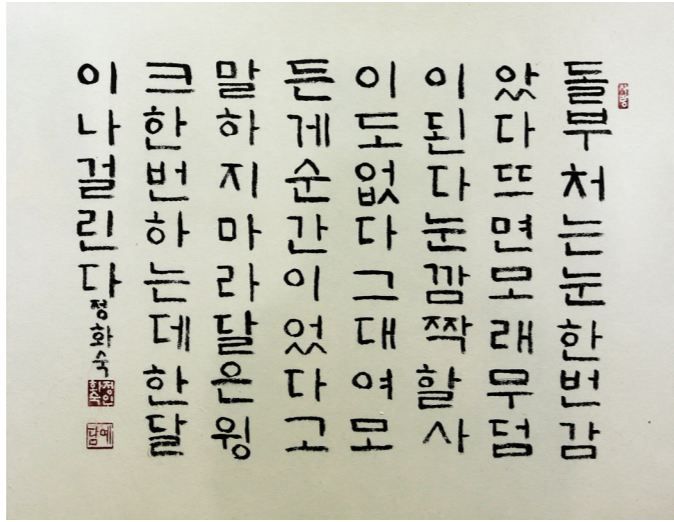 돌부처는눈한번감
았다뜨면모래무덤
이된다눈깜짝할사
이도없다그대여모
든게순간이었다고
말하지마라달은윙
크한번하는데한달
이나걸린다
정화숙
예담